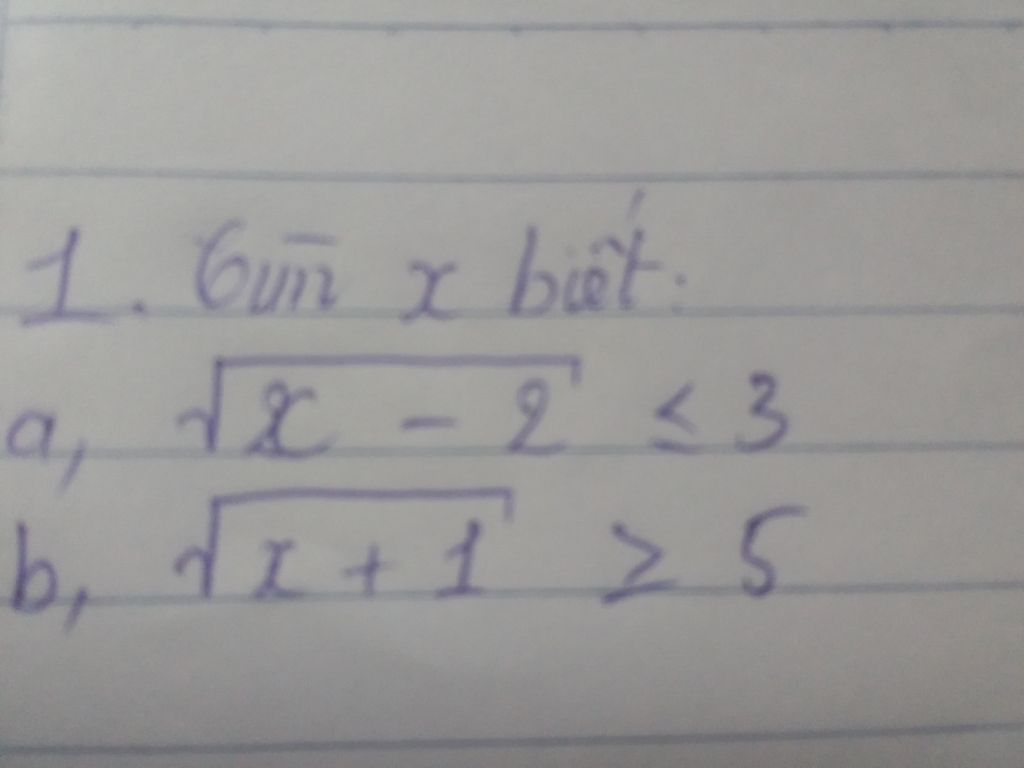 1. Tìm x biết:
a, √(x - 2) ≤ 3
b, √(x + 1) ≥ 5